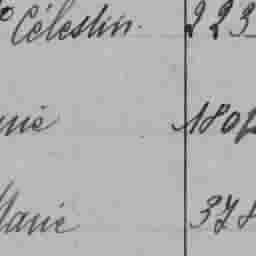 Célestin. 223
nie 180
Marie 378